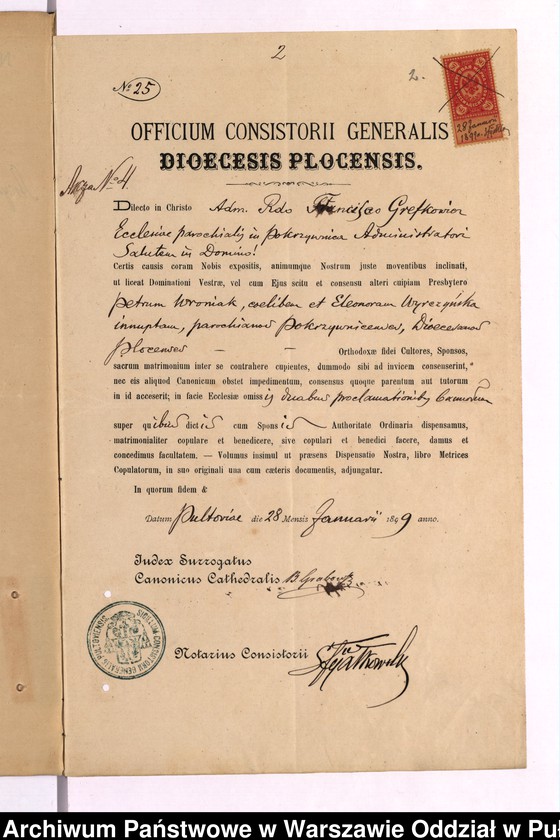 2
2.
№ 25
28 Januarii
OFFICIUM CONSISTORII GENERALIS
DIOECESIS PLOCENSIS.
№ 4.
Dilecto in Christo Adm. Rdo Francisco Grefkowicz
Ecclesiae parochialis in Pokrzywnica Administratori
Salutem in Domino!
Certis causis coram Nobis expositis, animumque Nostrum juste moventibus inclinati,
ut liceat Dominationi Vestræ, vel cum Ejus scitu et consensu alteri cuipiam Presbytero
Petrum Wroniak, coelibem et Eleonoram Wyrczyńska
innuptam, parochianos Pokrzywnicenses, Dioecesanos
Plocenses — — Orthodoxæ fidei Cultores, Sponsos,
sacrum matrimonium inter se contrahere cupientes, dummodo sibi ad invicem consenserint,
nec eis aliquod Canonicum obstet impedimentum, consensus quoque parentum aut tutorum
in id acceserit; in facie Ecclesiæ omissis duabus proclamationibus bannorum
super quibus dictis cum Sponsis Authoritate Ordinaris dispensamus,
matrimonialiter copulare et benedicere, sive copulari et benedici facere, damus et
concedimus facultatem. — Volumus insimul ut præsens Dispensatio Nostra, libro Metrices
Copulatorum, in suo originali una cum cæteris documentis, adjungatur.
In quorum fidem &
Datum Pultoviae die 28 Mensis Januarii 1899 anno.
Iudex Surrogatus
Canonicus Cathedralis
SIGILLUM CONSISTORII GENERALIS PULTOVIENSIS
Notarius Consistorii
Archiwum Państwowe w Warszawie Oddział w Pu